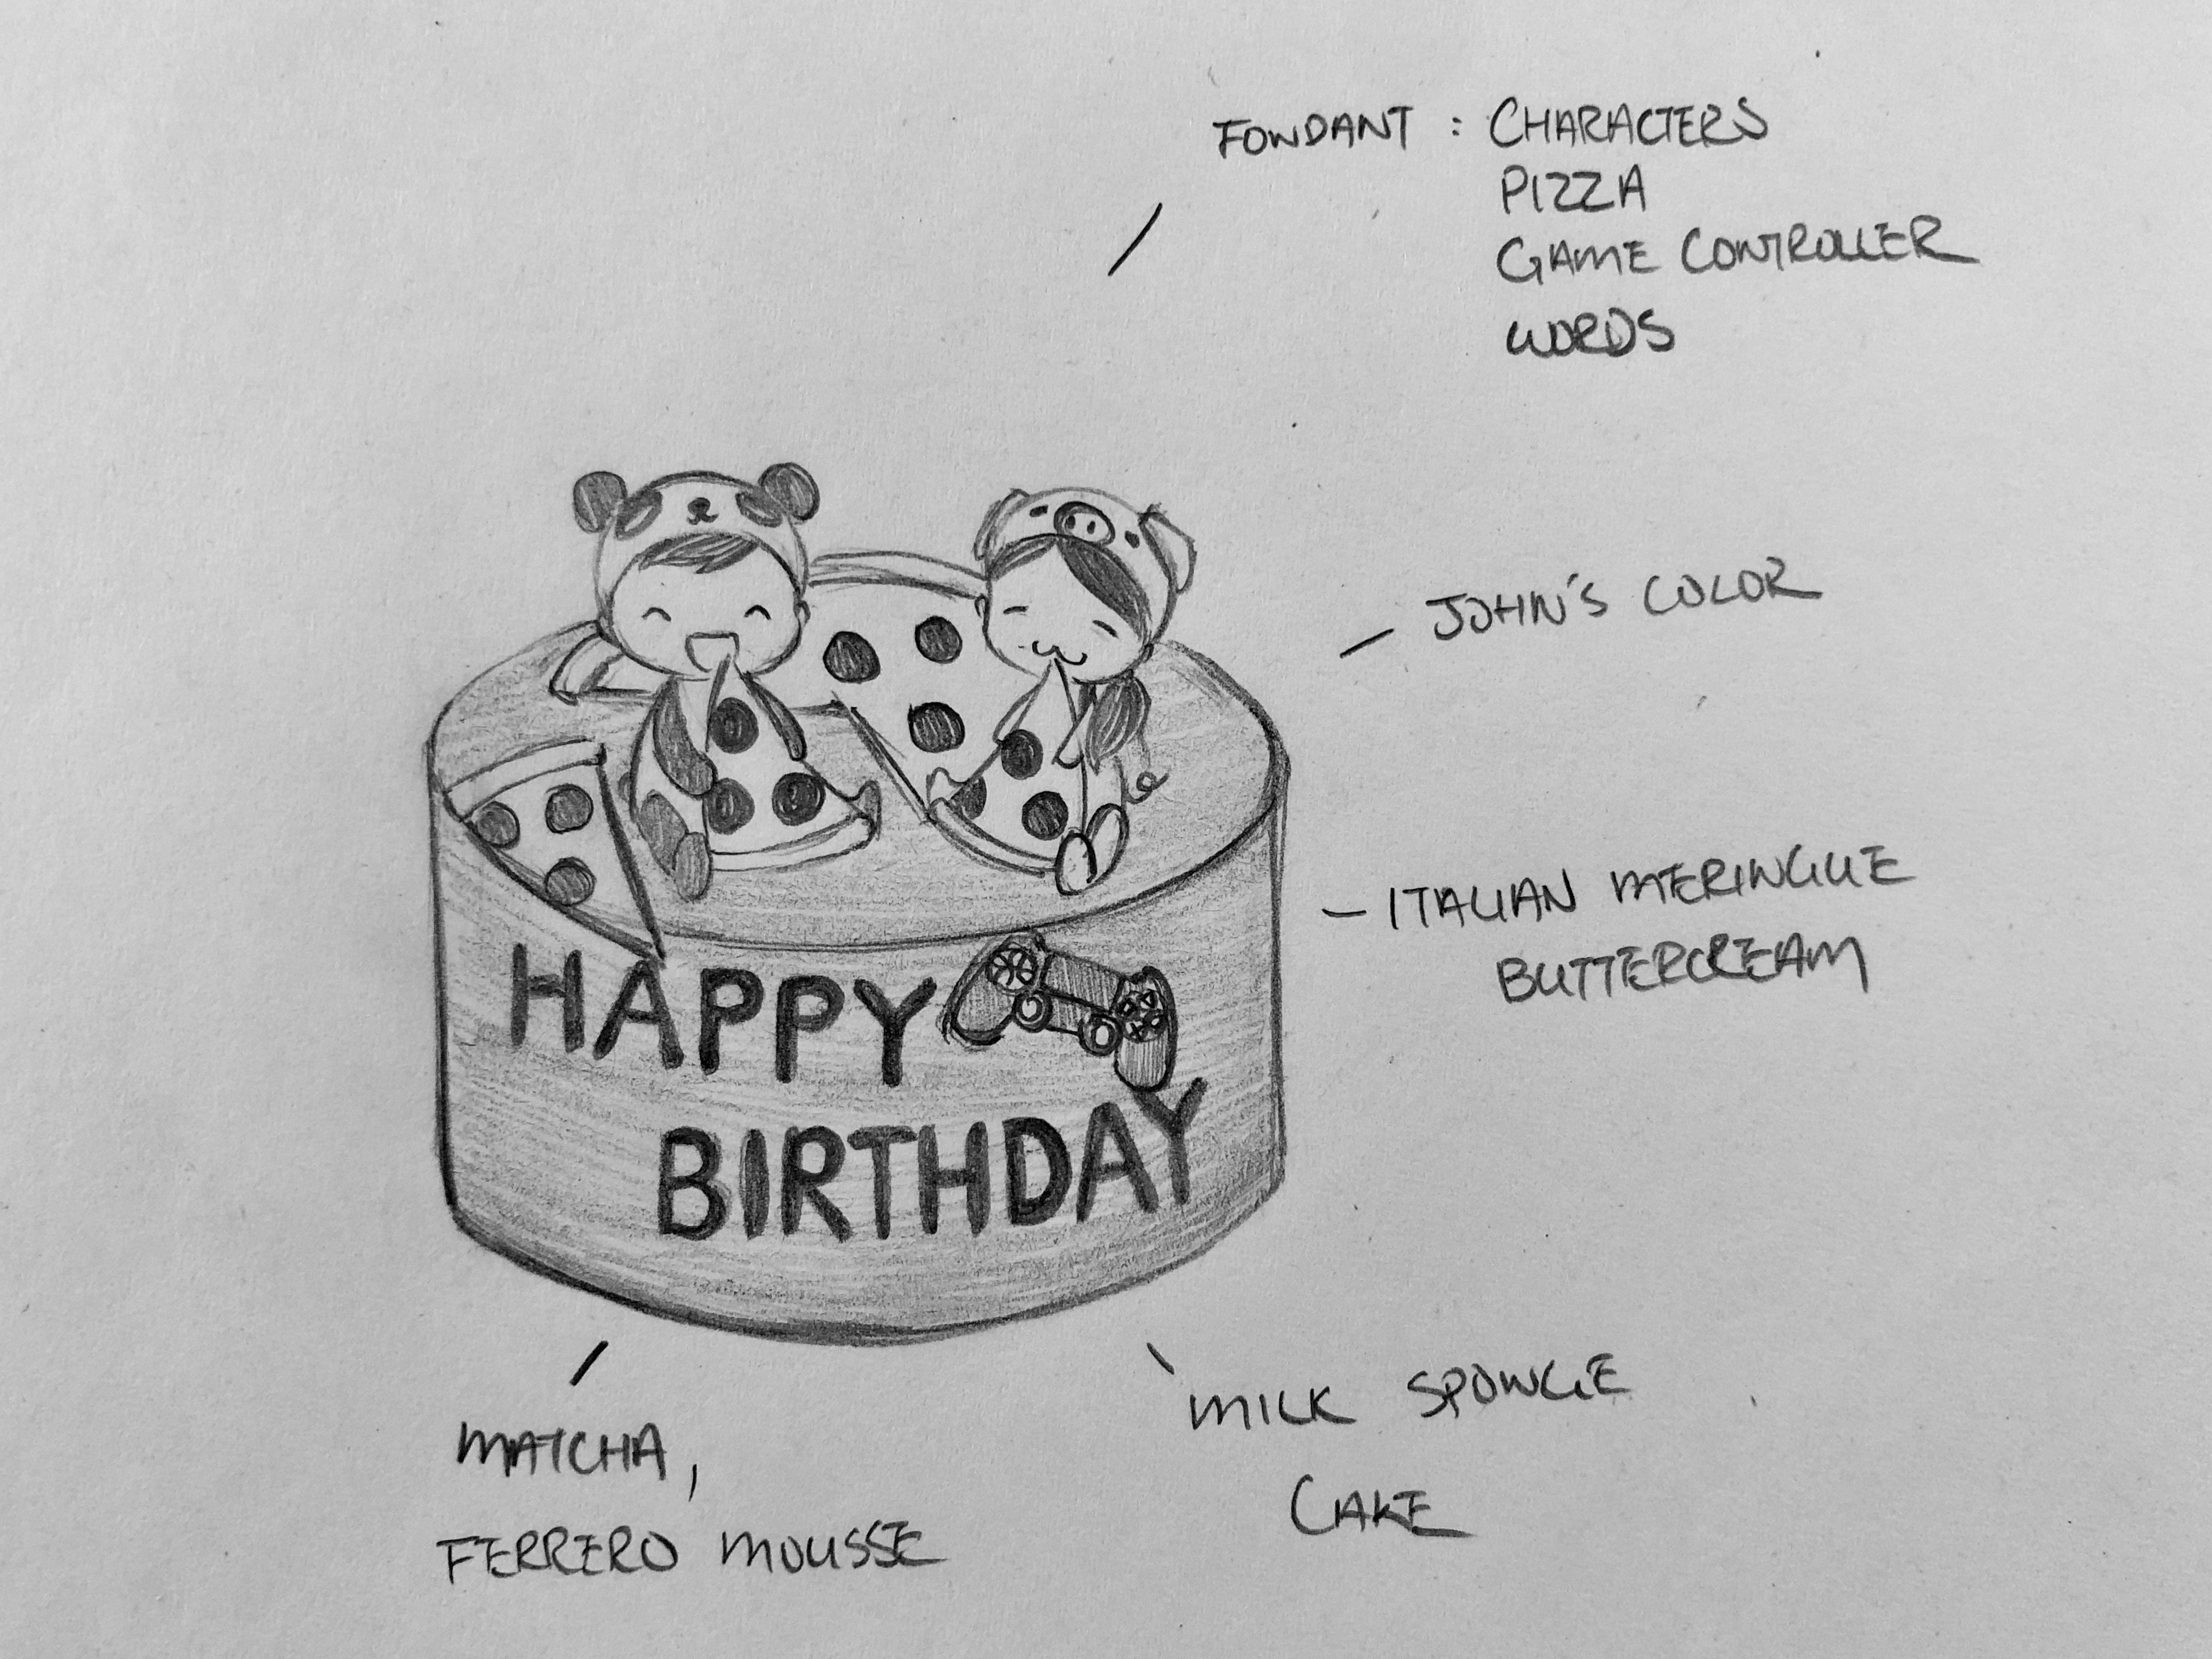 FONDANT : CHARACTERS
PIZZA
GAME CONTROLLER
WORDS
JOHN'S COLOR
ITALIAN MERINGUE
BUTTERCREAM
HAPPY
BIRTHDAY
MILK SPONGE
CAKE
MATCHA,
FERRERO MOUSSE